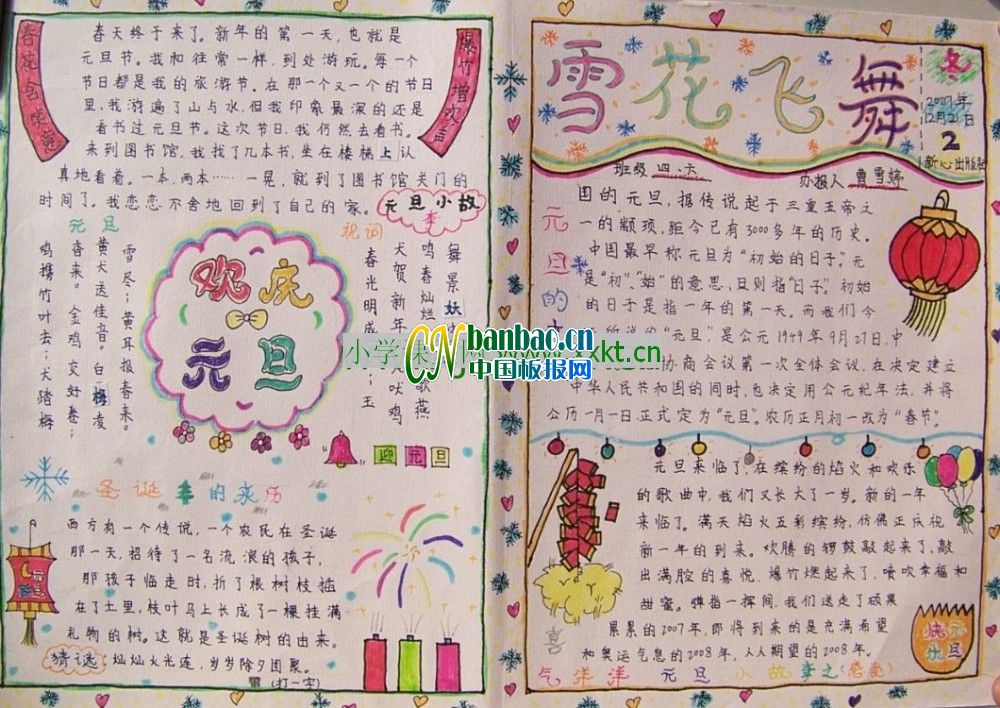 春花含笑意
爆竹增欢声
春天终于来了。新年的第一天,也就是
元旦节。我和往常一样,到处游玩。每一个
节日都是我的旅游节。在那一个又一个的节日
里,我游遍了山与水,但我印象最深的还是
看书过元旦节。这次节日,我仍然去看书。
来到图书馆,我找了几本书,坐在楼梯上认
真地看着。一本,两本……一晃,就到了图书馆关门的
时间了。我恋恋不舍地回到了自己的家。
元旦小故
李
元旦
祝词
雪尽;黄耳报春来。
黄犬送佳音。白梅凌
春来。金鸡交好卷;
鸡携竹叶去;犬踏梅
欢庆
元旦
迎元旦
圣诞的来历
西方有一个传说,一个农民在圣诞
那一天,招待了一名流浪的孩子,
那孩子临走时,折了根树枝插
在了土里,枝叶马上长成了一棵挂满
礼物的树。这就是圣诞树的由来。
猜谜:灿灿火光连,岁岁除夕团聚。
(打一字)
元旦
雪花飞舞
冬
2007年
12月21日
2
新心出版社
班级 四·六
办报人 曹雪婷
元旦的
国的元旦,据传说起于三皇五帝之
一的颛顼,距今已有3000多年的历史。
中国最早称元旦为“初始的日子”。元
是“初”、“始”的意思,旦则指“日子”。初始
的日子是指一年的第一天。而我们今
所说的“元旦”,是公元1949年9月21日,中
协商会议第一次全体会议,在决定建立
中华人民共和国的同时,也决定用公元纪年法,并将
公历一月一日正式定为“元旦”。农历正月初一改为“春节”。
元旦来临了,在缤纷的焰火和欢乐
的歌曲中,我们又长大了一岁。新的一年
来临了。满天焰火五彩缤纷,仿佛正庆祝
新一年的到来。欢腾的锣鼓敲起来了,敲
出满腔的喜悦,爆竹燃起来了,喷吹幸福和
甜蜜。弹指一挥间,我们送走了硕果
累累的2007年,即将到来的是充满希望
和奥运气息的2008年,人人期望的2008年。
喜
气洋洋 元旦小故李之(感卷)
快元
乐旦
小学 www. xxkt.cn
CN banbao.cn
中国板报网